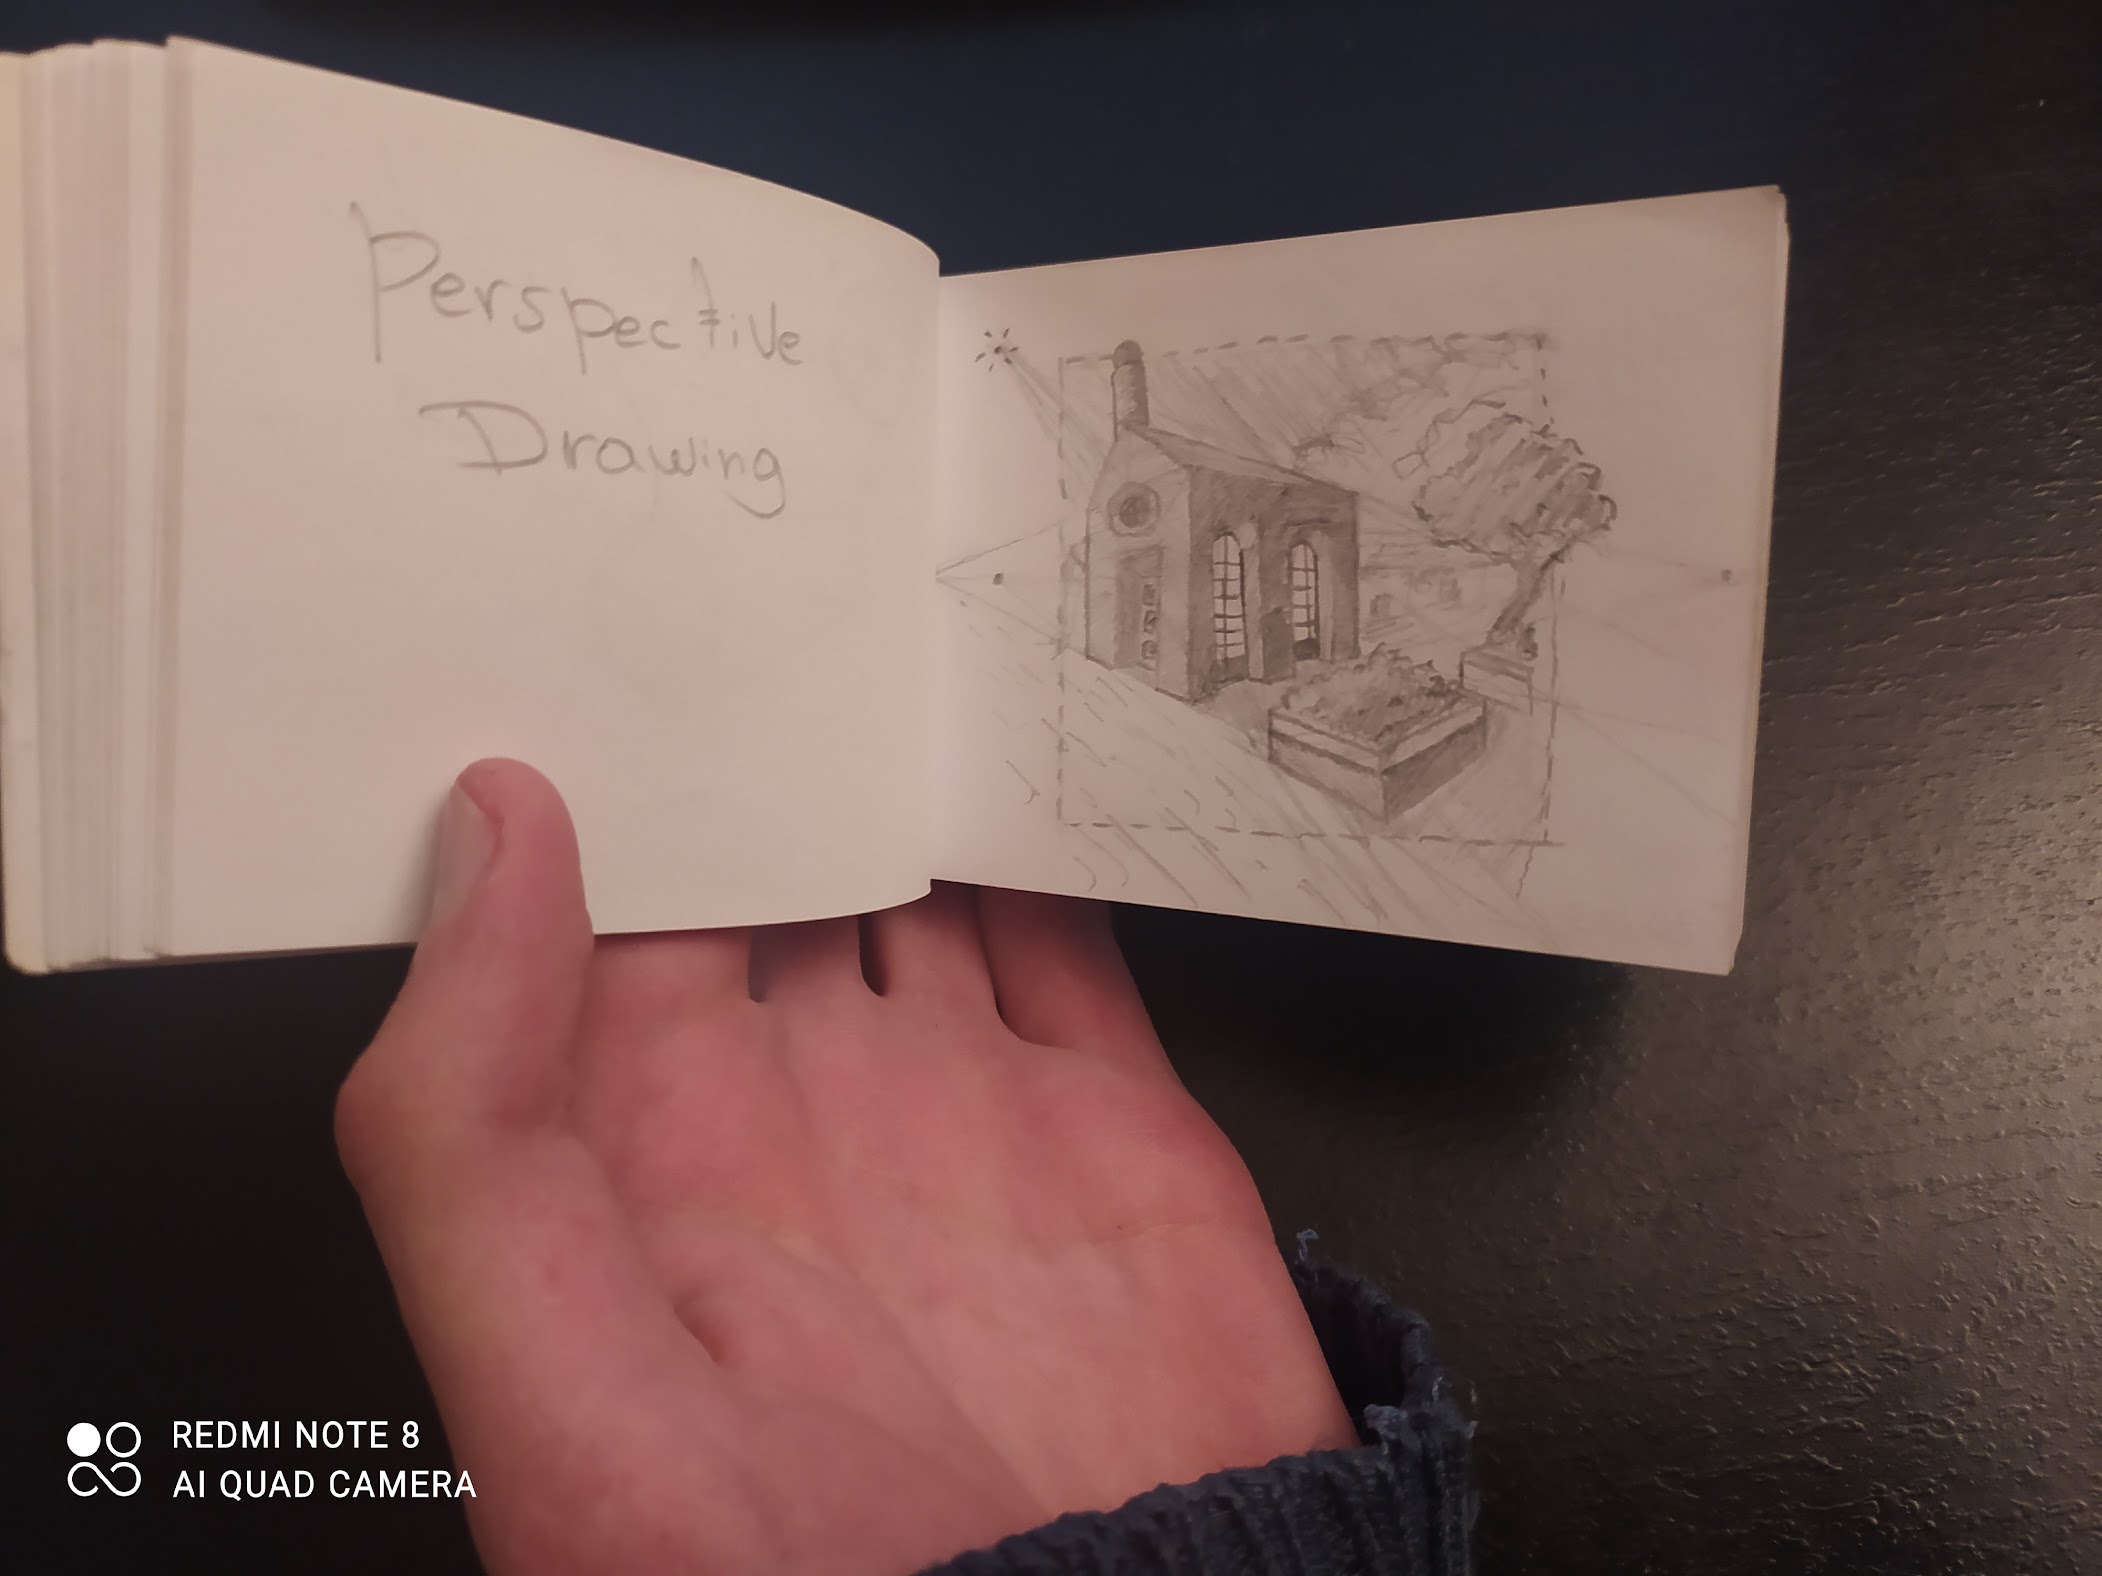 Perspective
Drawing
REDMI NOTE 8
AI QUAD CAMERA